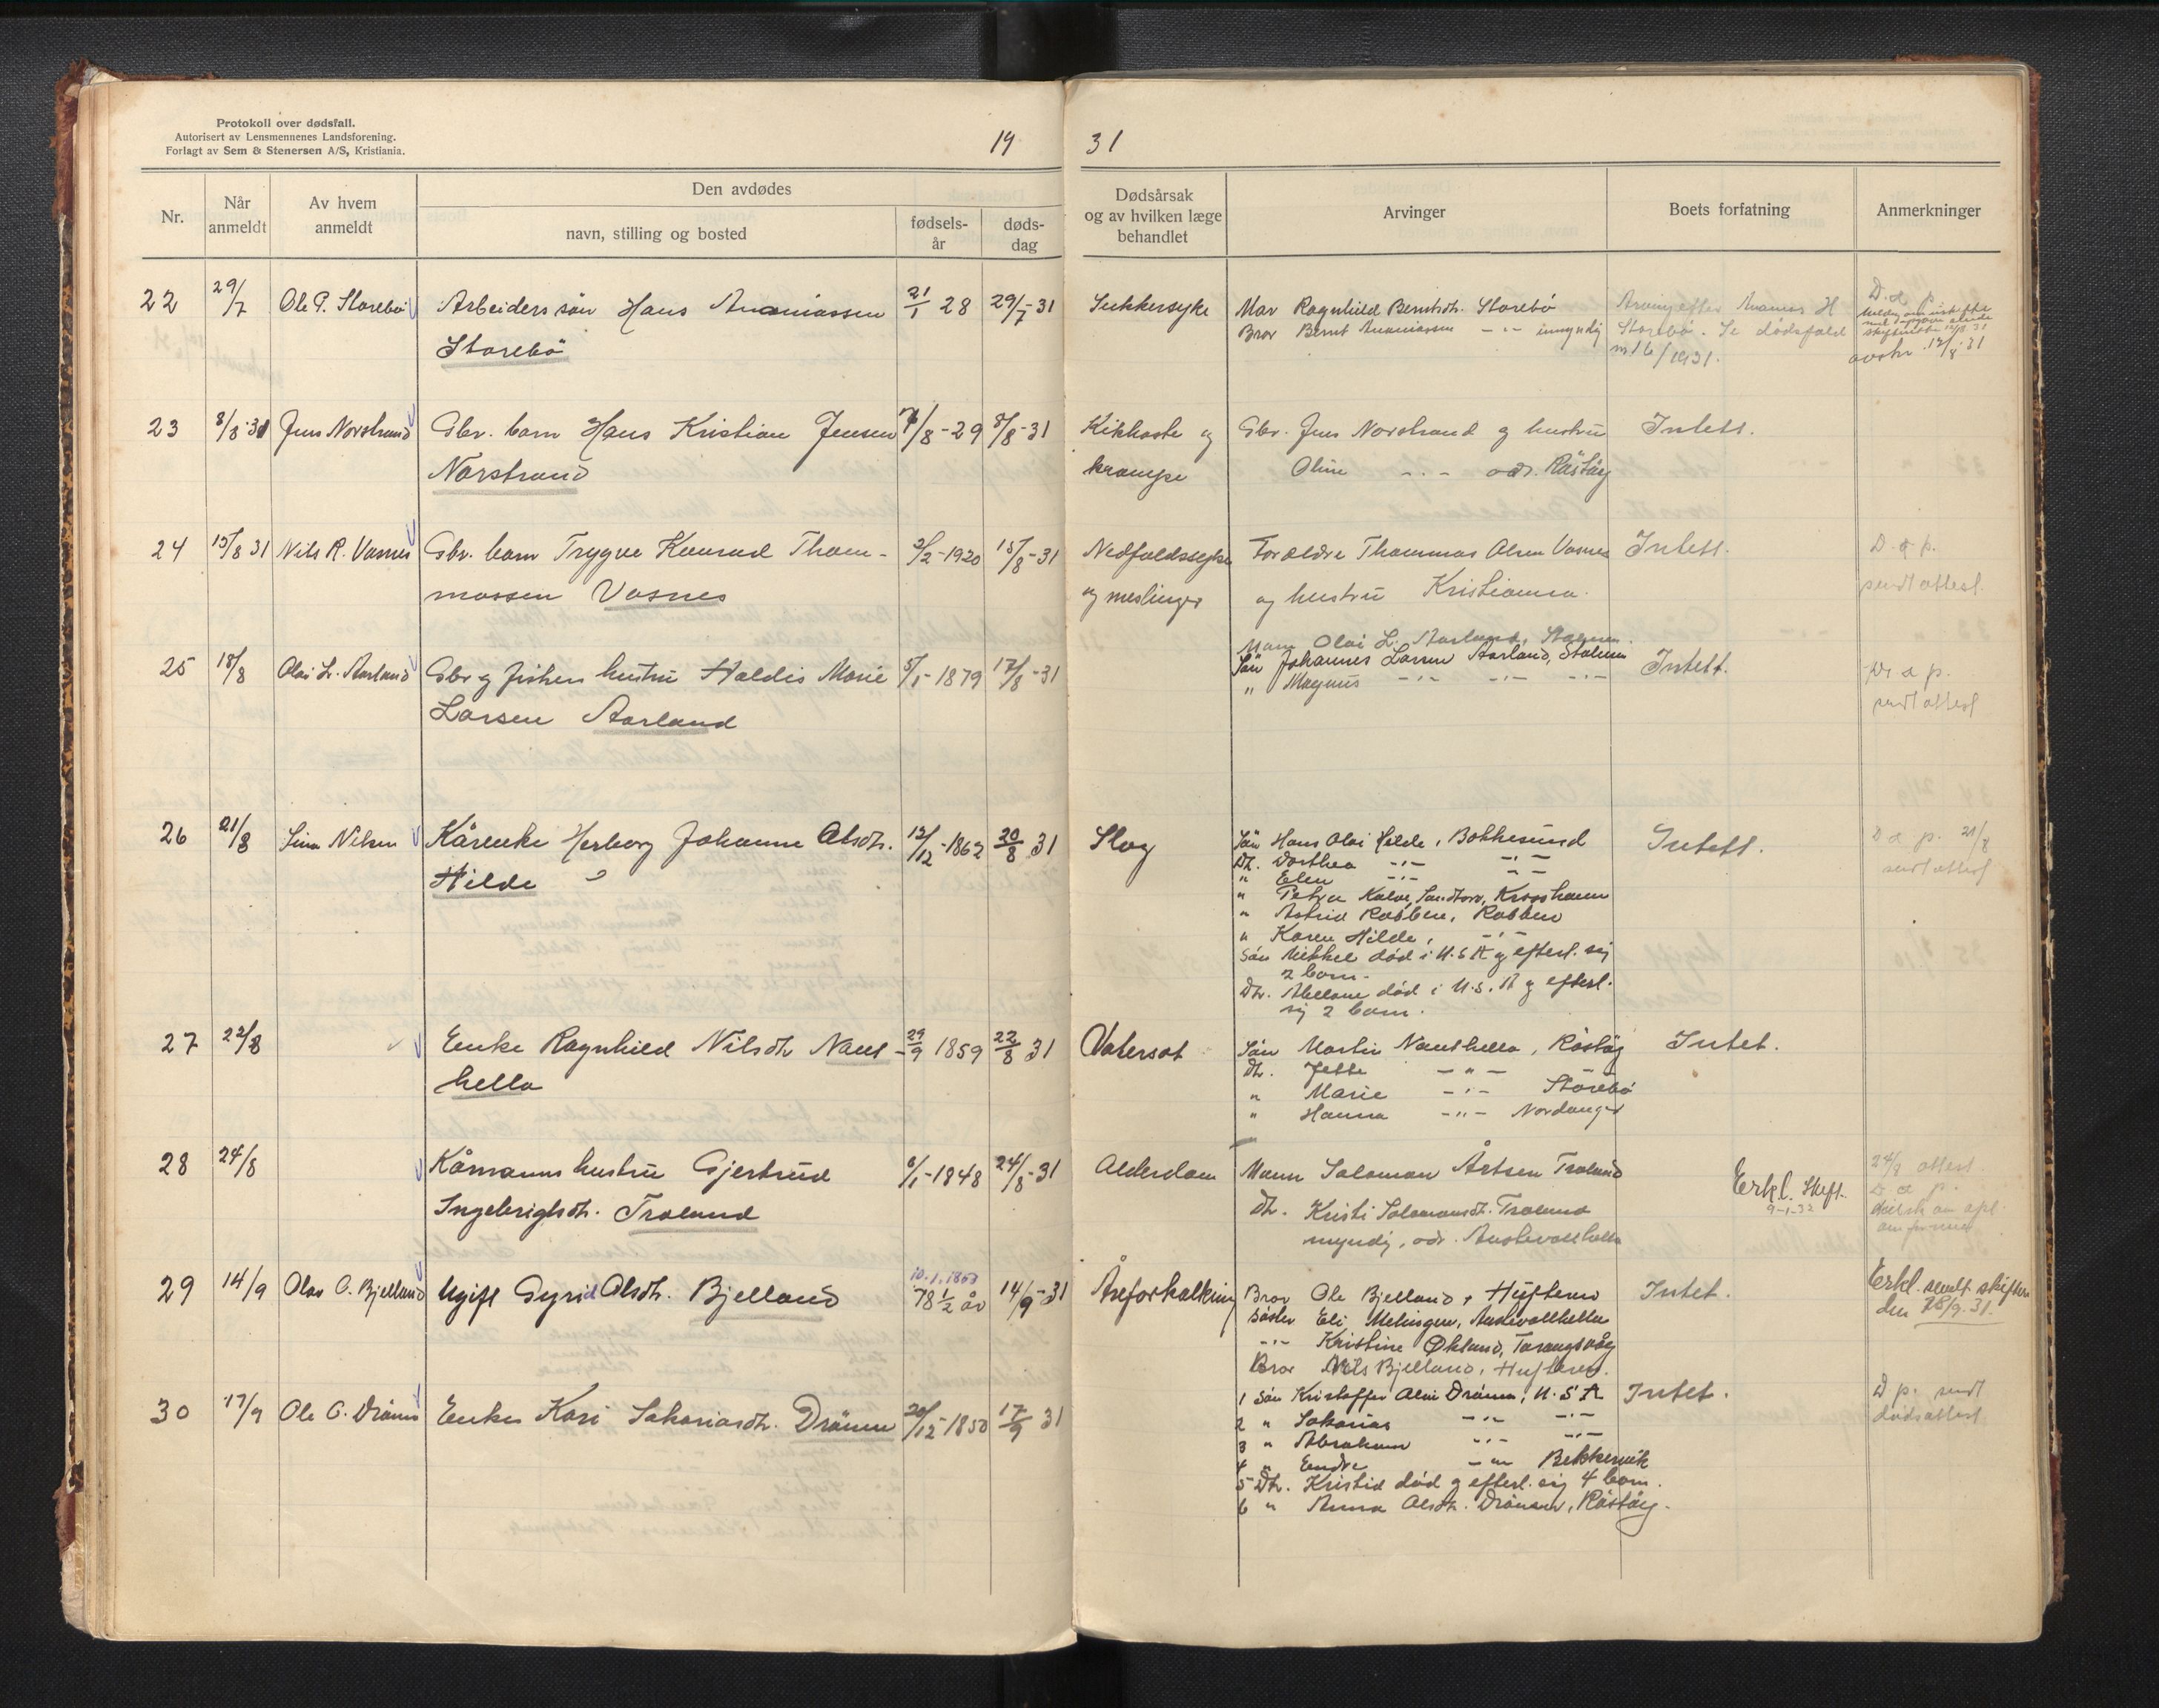 Protokoll over dødsfall.
Autorisert av Lensmennenes Landsforening.
Forlagt av Sem & Stenersen A/S, Kristiania.
19 31
Nr.
Når anmeldt
Av hvem anmeldt
Den avdødes
navn, stilling og bosted
fødsels-år
døds-dag
Dødsårsak og av hvilken læge behandlet
Arvinger
Boets forfatning
Anmerkninger
22 29/7 Ole P. Storebö Arbeiders sön Hans Ananiassen 21/1 28 29/7-31 Sukkersyke Mor Ragnhild Berntsdtr. Storebö
Storebö
Bror Bernt Ananiassen -"- umyndig
Arving efter Ananias H
Storebö. Se dödsfald
nr 16/1931.
D. a p.
avskr. 12/8 31
23 8/8-31 Jens Norstrand Gbr. barn Hans Kristian Jensen /8-29 8/8-31 Kikhoste og Gbr. Jens Norstrand og hustru Intett.
Norstrand krampe Oline -"- adr. Råstög
24 15/8 31 Nils R. Vasnes Gbr. barn Trygve Konrad Thom- 2/2-1920 15/8-31 Nedfaldssyke Forældre Thommas Olsen Vasnes Intett. D. a p.
massen Vasnes og meslinger og hustru Kristianna. sendt attest.
25 18/8 Olai L. Aarland Gbr og fiskers hustru Haldis Marie 5/1-1879 17/8-31 Mann Olai L. Aarland, Stolmen.
Sön Johannes Larsen Aarland, Stolmen Intett.
Larsen Aarland
" Magnus -"- -"- -"-
D. a p.
sendt attest
26 21/8 Sina Nilsen Kårenke Herborg Johanne Olsdtr. 12/12-1862 20/8 31 Slag Sön Hans Olai Hilde, Bekkesund Intett. D a p. 21/8
Hilde sendt attest
Dt. Dorthea -"- -"-
" Elen -"- -"-
" Petra Kalve, Sandtorv,
" Astrid Rabben, Rabben
" Karen Hilde, -"-
Sön Mikkel död i U.S.A og efterl. sig
2 barn.
Dtr. Abelone död i U.S.A og efterl.
sig 2 barn.
27 22/8 Enke Ragnhild Nilsdtr Naust- 29/9 1859 22/8 31 Vatersot Sön Martin Nausthella, Råstög Intet.
hella
Dt. Jette -"-
" Marie -"- Storebö
" Hanna -"- Nordanger
28 24/8 Kåmanns hustru Gjertrud 6/1-1848 24/8-31 Alderdom Mann Salamon Årtsen Troland
Ingebrigtsdtr. Troland Dt. Kristi Salamonsdt. Troland
myndig, adr. Austevollhella
Erkl. Skift.
9-1-32
24/8 attest.
D a p.
29 14/9 Olav O. Bjelland Ugift Gyrid Olsdtr. Bjelland 10.1.1853 78 1/2 år 14/9-31 Åreforkalkning Bror Ole Bjelland, Huftern Intet. Erkl. sendt skifter.
den 18/9.31.
Söster Eli Melingen, Austevollhella
-"- Kristine Økland, Tarangsvåg
Bror Nils Bjelland, Huftern.
30 17/9 Ole O. Drönen Enke Kari Sakariasdtr. Drönen 20/12-1850 17/9 31 1 Sön Kristoffer Olai Drönen, U.S.A Intet. D p. sendt
dödsattest
2 " Sakarias -"- -"-
3 " Abraham -"- -"-
4 " Endre -"- Bekkervik
5 Dtr. Kristid död og efterl. sig 4 barn.
6 " Anna Olsdtr. Drönen, Råstög.